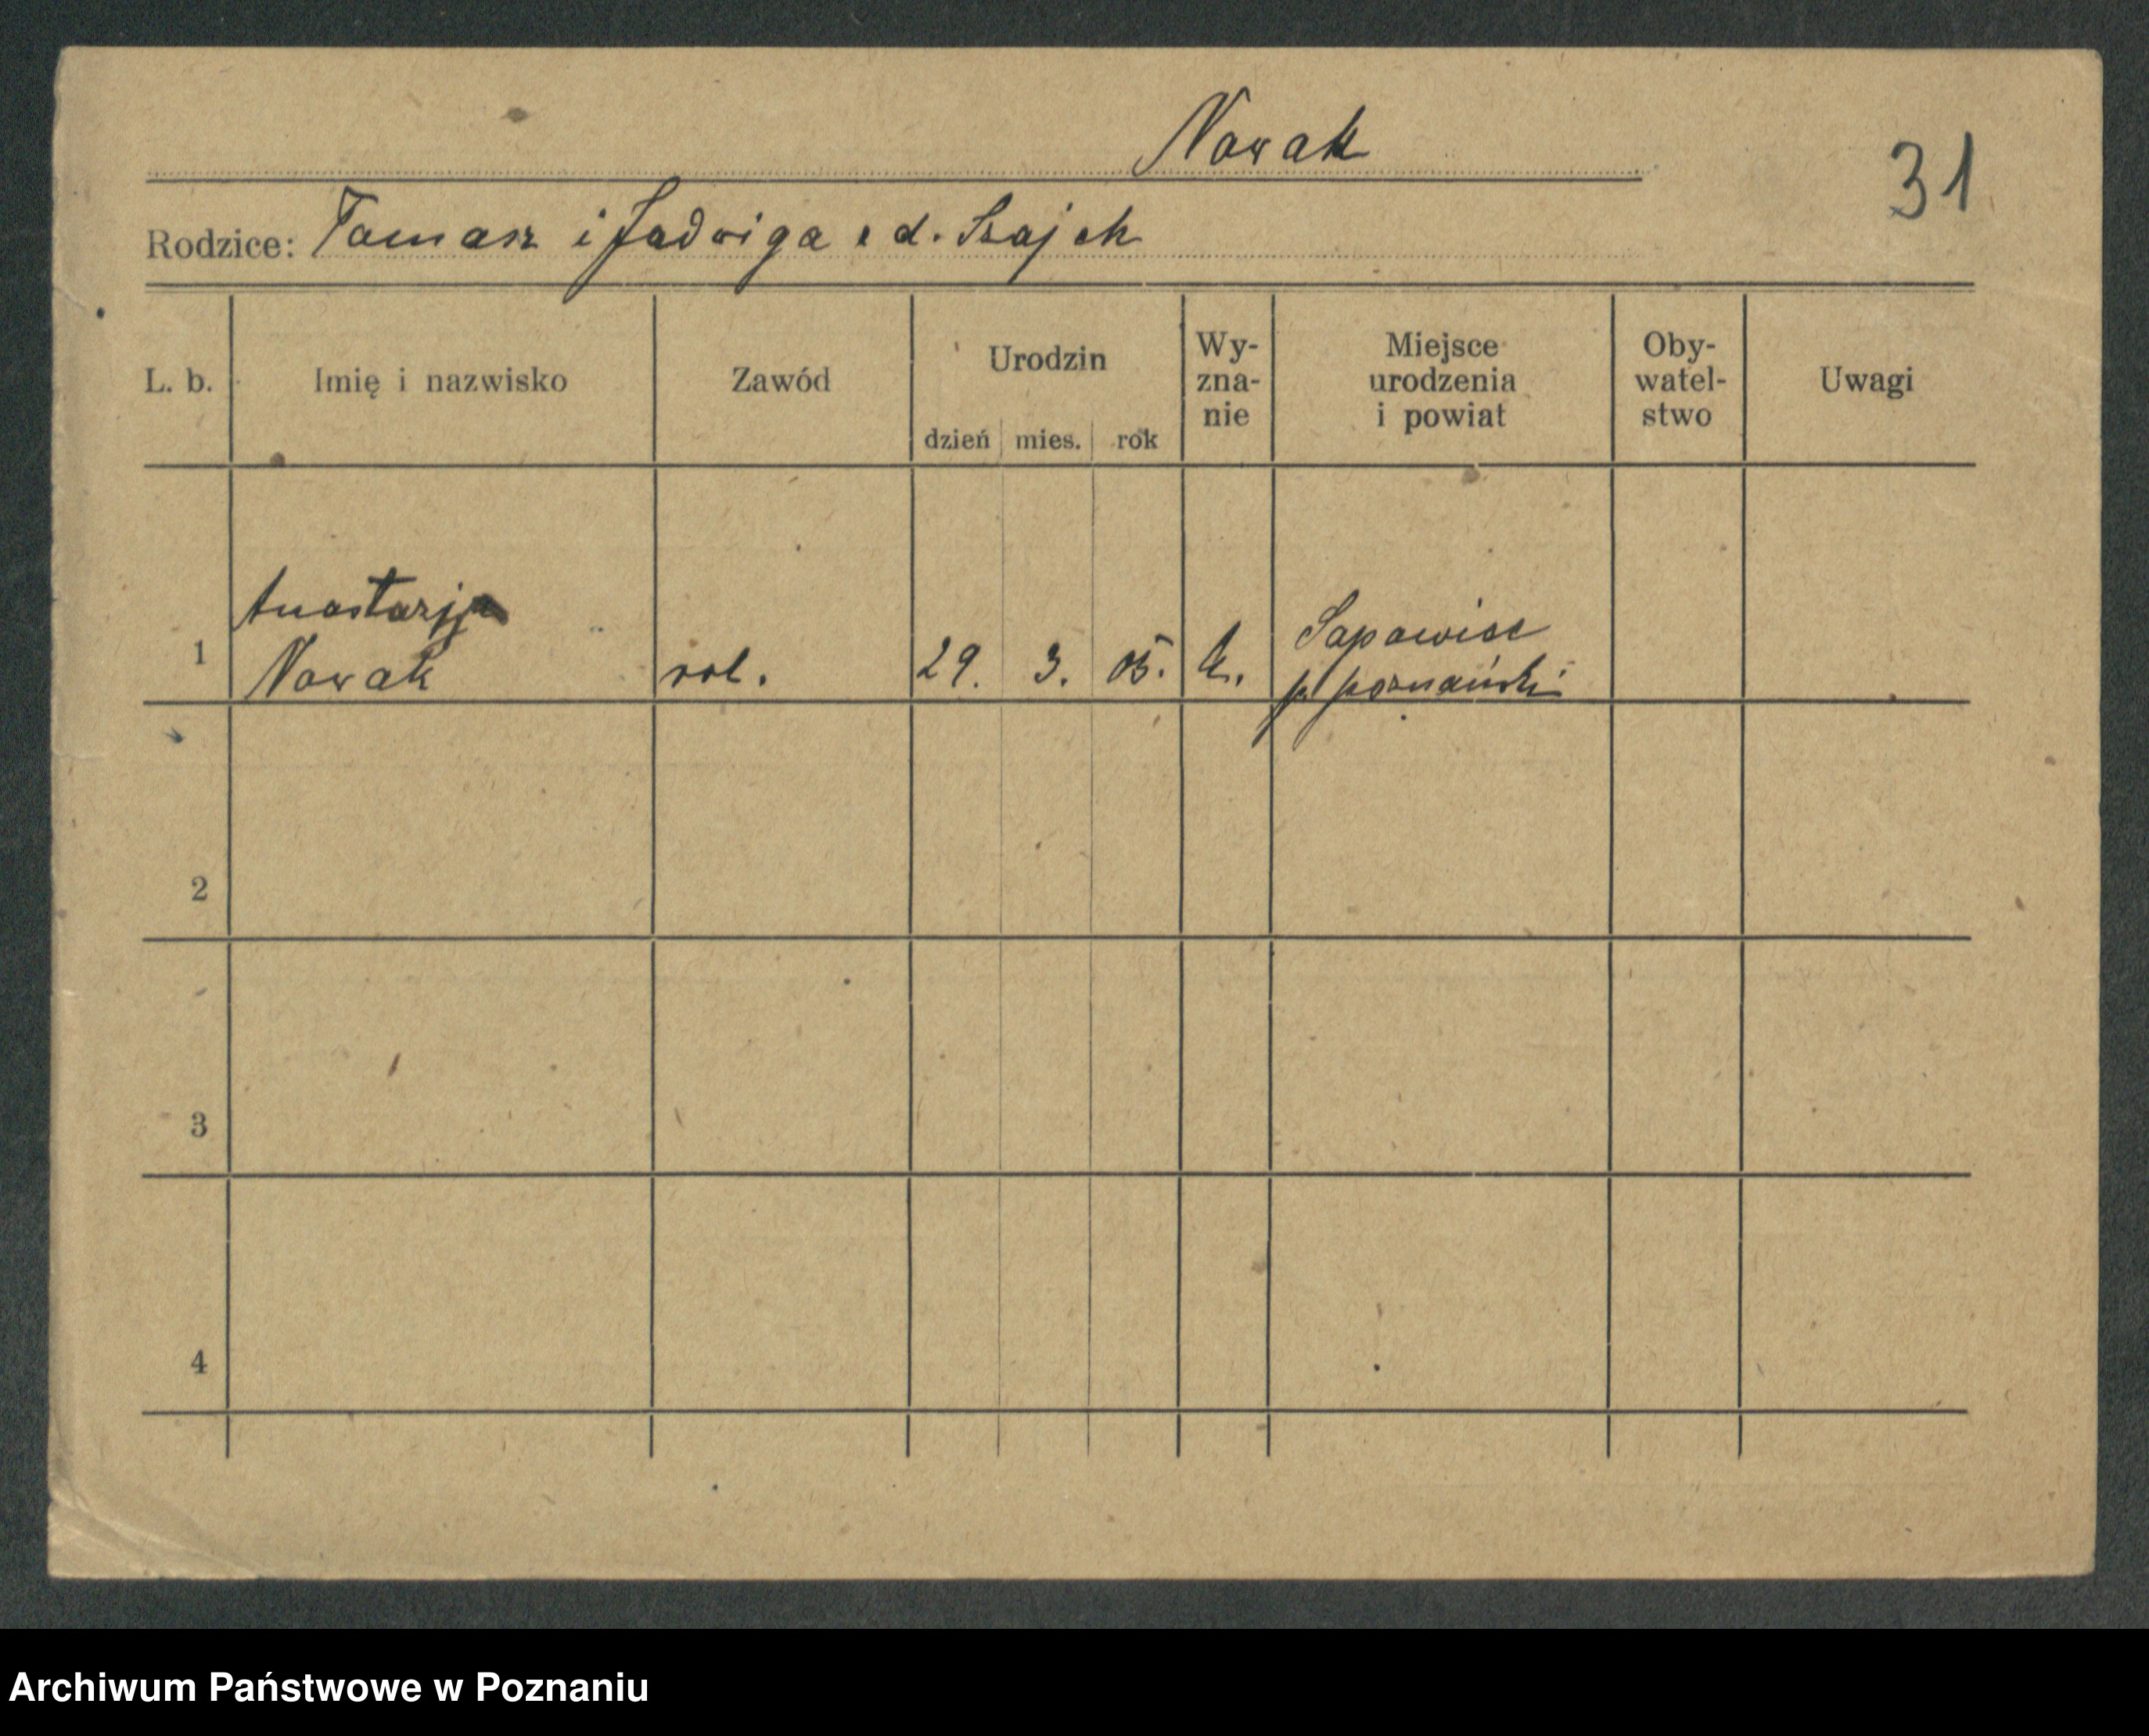 Nowak
31
Rodzice: Tomasz i Jadwiga z d. Szajek
L. b. Imię i nazwisko Zawód Urodzin dzień mies. rok Wy-zna-nie Miejsce urodzenia i powiat Oby-watel-stwo Uwagi
Anastazja
1 Nowak rol. 29. 3. 05. k. Sapowice
p. poznański
2
3
4
Archiwum Państwowe w Poznaniu